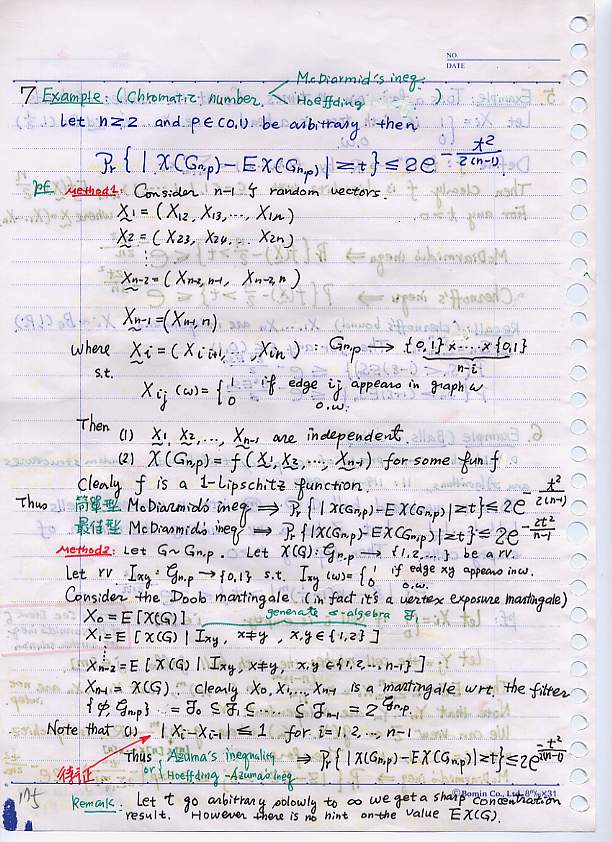 NO.
DATE
McDiarmid's ineq.
7 Example: (Chromatic number, Hoeffding )
Let n≥2 and p∈(0,1) be arbitrary then
Pr{ | χ(Gn,p) - Eχ(Gn,p) | ≥ t } ≤ 2e^{-t²/2(n-1)}
pf. Method1: Consider n-1 random vectors.
X1 = ( X12, X13, ..., X1n )
X2 = ( X23, X24, ... X2n )
⋮
Xn-2 = ( Xn-2,n-1, Xn-2,n )
Xn-1 = ( Xn-1,n )
where Xi = ( Xi i+1, ..., Xin ) : Gn,p → {0,1}×...×{0,1}
n-i
s.t.
Xij (ω) = { 1 if edge ij appears in graph ω
0 o.w.
Then
(1) X1, X2, ..., Xn-1 are independent.
(2) χ(Gn,p) = f( X1, X2, ..., Xn-1 ) for some fun f
Clealy f is a 1-Lipschitz function.
Thus 簡單型 McDiarmid's ineq ⟹ Pr{ | χ(Gn,p) - Eχ(Gn,p) | ≥ t } ≤ 2e^{-t²/2(n-1)}
最佳型 McDiarmid's ineq ⟹ Pr{ | χ(Gn,p) - Eχ(Gn,p) | ≥ t } ≤ 2e^{-2t²/n-1}
Method2: Let G ~ Gn,p . Let χ(G): Gn,p → {1,2,...} be a rv.
Let rv Ixy : Gn,p → {0,1} s.t. Ixy (ω) = { 1 if edge xy appears in ω.
0 o.w.
Consider the Doob martingale (in fact it's a vertex exposure martingale)
X0 = E[χ(G)] generate σ-algebra F1
X1 = E[ χ(G) | Ixy, x≠y, x,y∈{1,2} ]
⋮
Xn-2 = E[ χ(G) | Ixy, x≠y, x,y∈{1,2,...,n-1} ]
Xn-1 = χ(G). clearly X0, X1, ..., Xn-1 is a martingale wrt. the filter
{φ, Gn,p} = F0 ⊆ F1 ⊆ ..... ⊆ Fn-1 = 2^{Gn,p}.
Note that (1) | Xi - Xi-1 | ≤ 1 for i=1,2,..., n-1
Thus { Azuma's inequality ⟹ Pr{ | χ(Gn,p) - Eχ(Gn,p) | ≥ t } ≤ 2e^{-t²/2(n-1)}
or Hoeffding-Azuma's ineq
待証
Remark: Let t go arbitrary slowly to ∞ we get a sharp concentration
result. However there is no hint on the value Eχ(G).